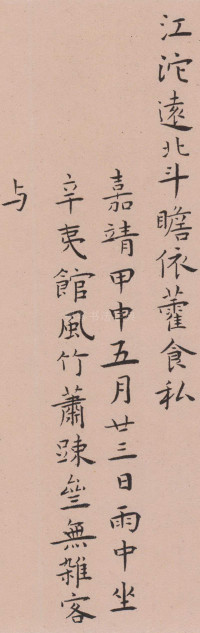 江沱遠北斗瞻依藿食私
嘉靖甲申五月廿三日雨中坐
辛夷館風竹蕭踈參無雜客
与